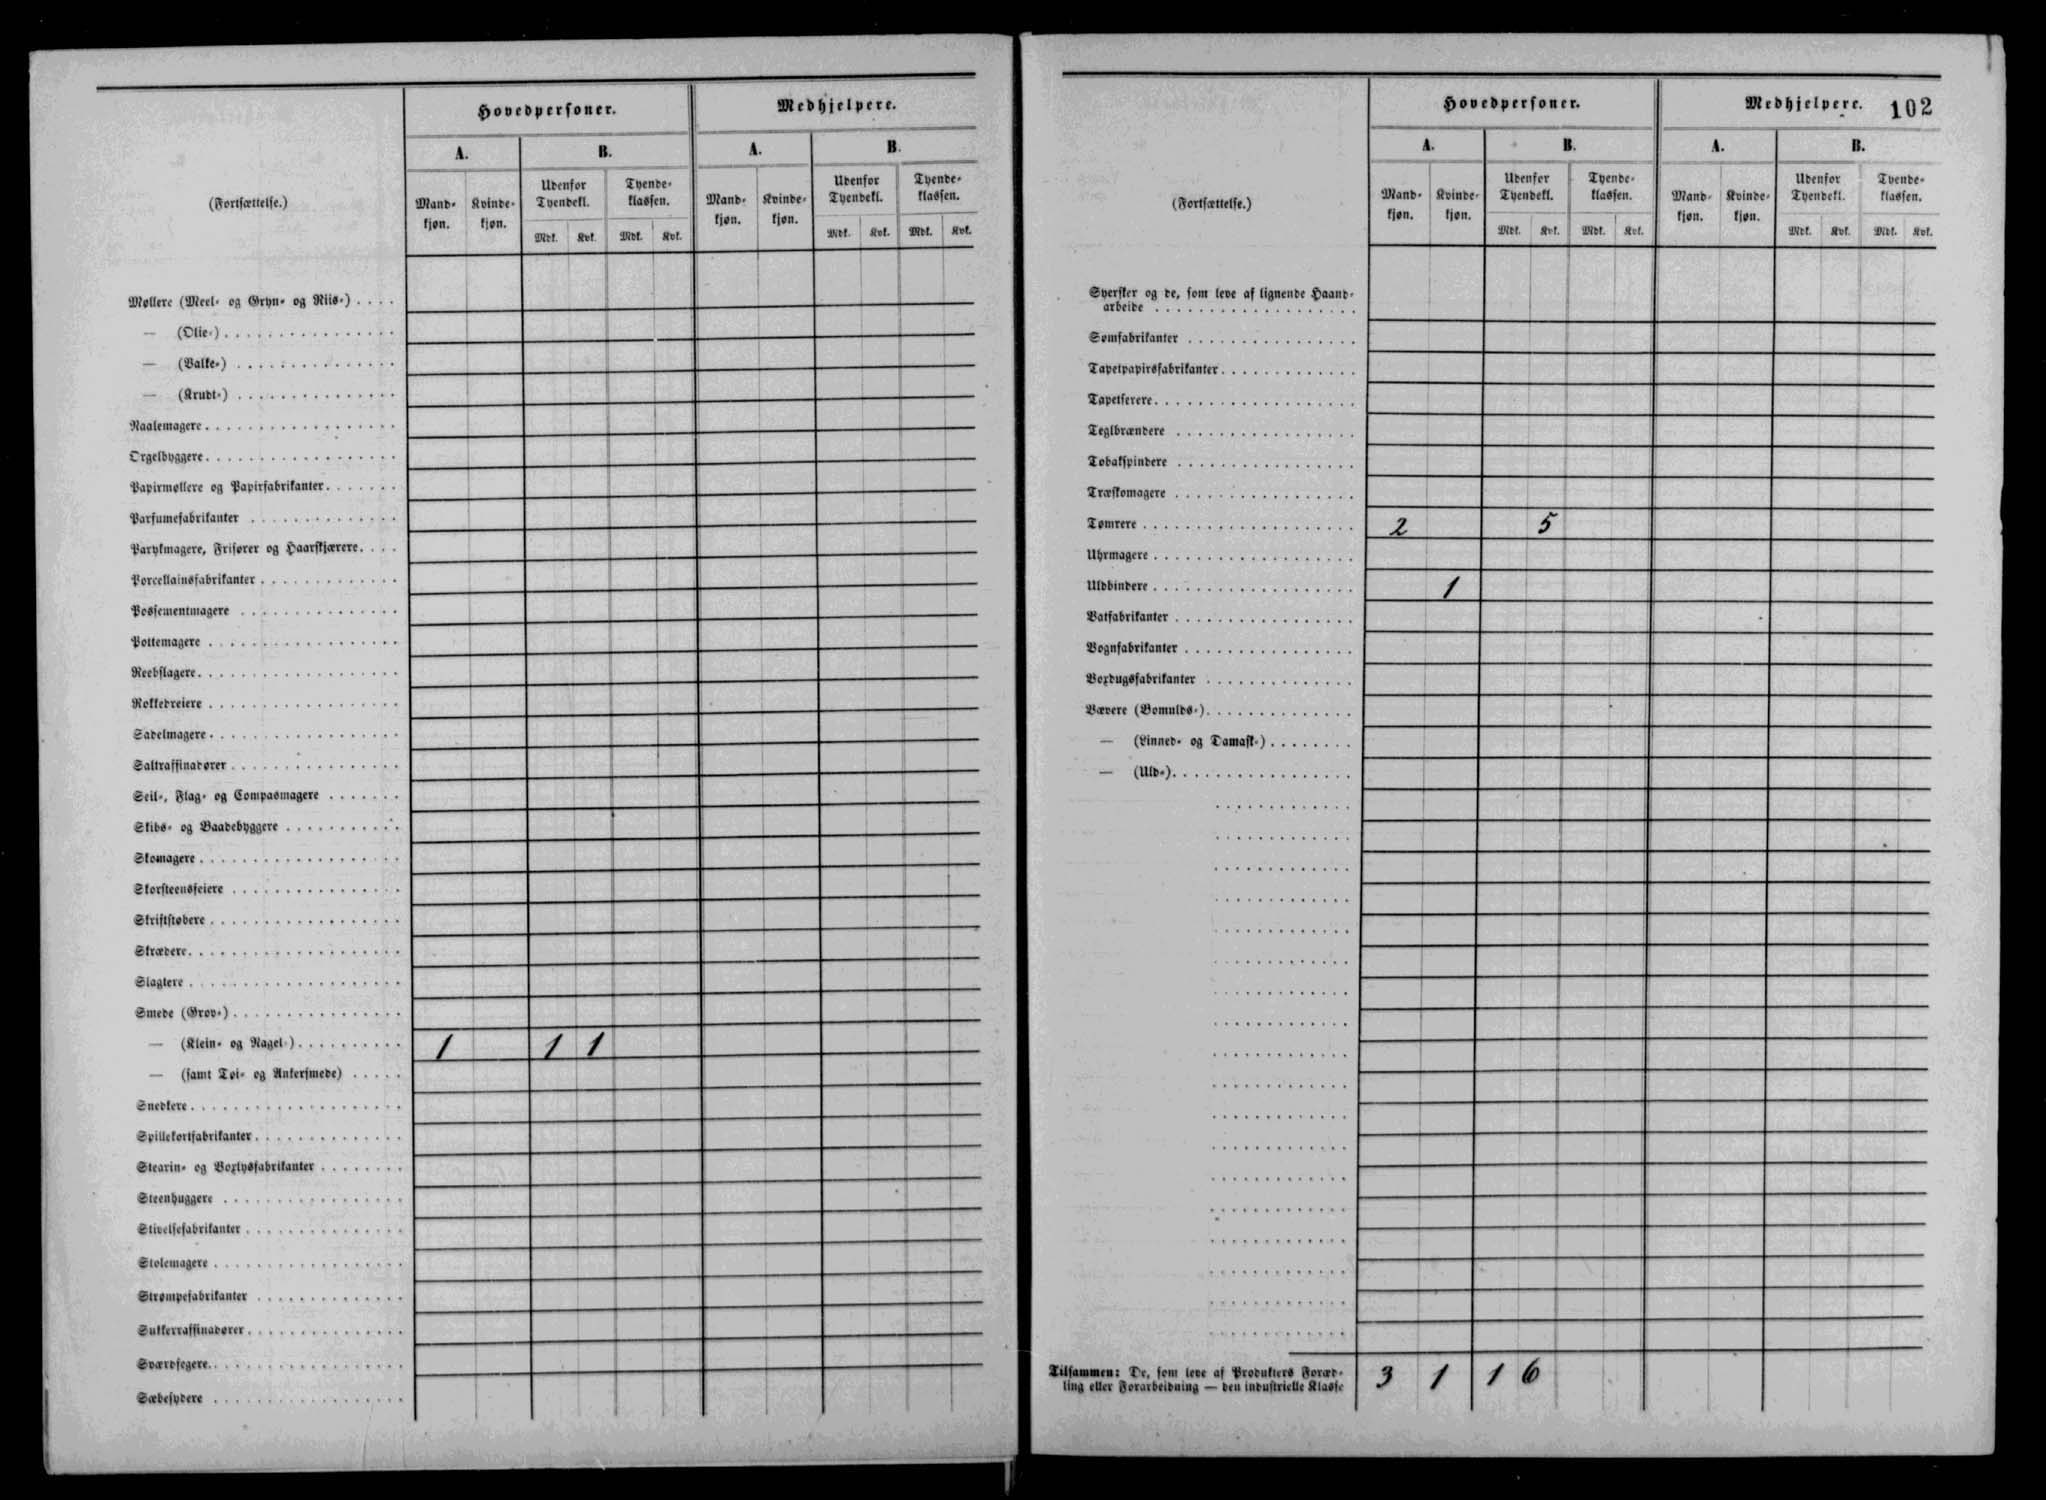 Hovedpersoner.
Medhjelpere.
A.
B.
A.
B.
(Fortsættelse.)
Mand-
kjøn.
Kvinde-
kjøn.
Udenfor
Tyendekl.
Tyende-
klassen.
Mand-
kjøn.
Kvinde-
kjøn.
Udenfor
Tyendekl.
Tyende-
klassen.
Mdk. Kvk. Mdk. Kvk.
Mdk. Kvk. Mdk. Kvk.
Møllere (Meel- og Gryn- og Riis-) . . . .
— (Olie-) . . . .
— (Valke-) . . . .
— (Krudt-) . . . .
Naalemagere . . . .
Orgelbyggere . . . .
Papirmøllere og Papirfabrikanter . . . .
Parfumefabrikanter . . . .
Parykmagere, Frisører og Haarskjærere . . . .
Porcellainsfabrikanter . . . .
Possementmagere . . . .
Pottemagere . . . .
Reebslagere . . . .
Rokkedreiere . . . .
Sadelmagere . . . .
Saltraffinadører . . . .
Seil-, Flag- og Compasmagere . . . .
Skibs- og Baadebyggere . . . .
Skomagere . . . .
Skorsteensfeiere . . . .
Skriftstøbere . . . .
Skrædere . . . .
Slagtere . . . .
Smede (Grov-) . . . .
— (Klein- og Nagel-) . . . . 1 1 1
— (samt Tøi- og Ankersmede) . . . .
Snedkere . . . .
Spillekortfabrikanter . . . .
Stearin- og Voxlysfabrikanter . . . .
Steenhuggere . . . .
Stivelsefabrikanter . . . .
Stolemagere . . . .
Strømpefabrikanter . . . .
Sukkerraffinadører . . . .
Sværdfegere . . . .
Sæbesydere . . . .
Hovedpersoner.
Medhjelpere.
102
A.
B.
A.
B.
(Fortsættelse.)
Mand-
kjøn.
Kvinde-
kjøn.
Udenfor
Tyendekl.
Tyende-
klassen.
Mand-
kjøn.
Kvinde-
kjøn.
Udenfor
Tyendekl.
Tyende-
klassen.
Mdk. Kvk. Mdk. Kvk.
Mdk. Kvk. Mdk. Kvk.
Syersker og de, som leve af lignende Haand-
arbeide . . . .
Sømfabrikanter . . . .
Tapetpapirsfabrikanter . . . .
Tapetserere . . . .
Teglbrændere . . . .
Tobakspindere . . . .
Træskomagere . . . .
Tømrere . . . . 2 5
Uhrmagere . . . .
Uldbindere . . . . 1
Vatfabrikanter . . . .
Vognfabrikanter . . . .
Voxdugsfabrikanter . . . .
Vævere (Bomulds-) . . . .
— (Linned- og Damask-) . . . .
— (Uld-) . . . .
Tilsammen: De, som leve af Produkters Foræd-
ling eller Forarbeidning — den industrielle Klasse 3 1 1 6